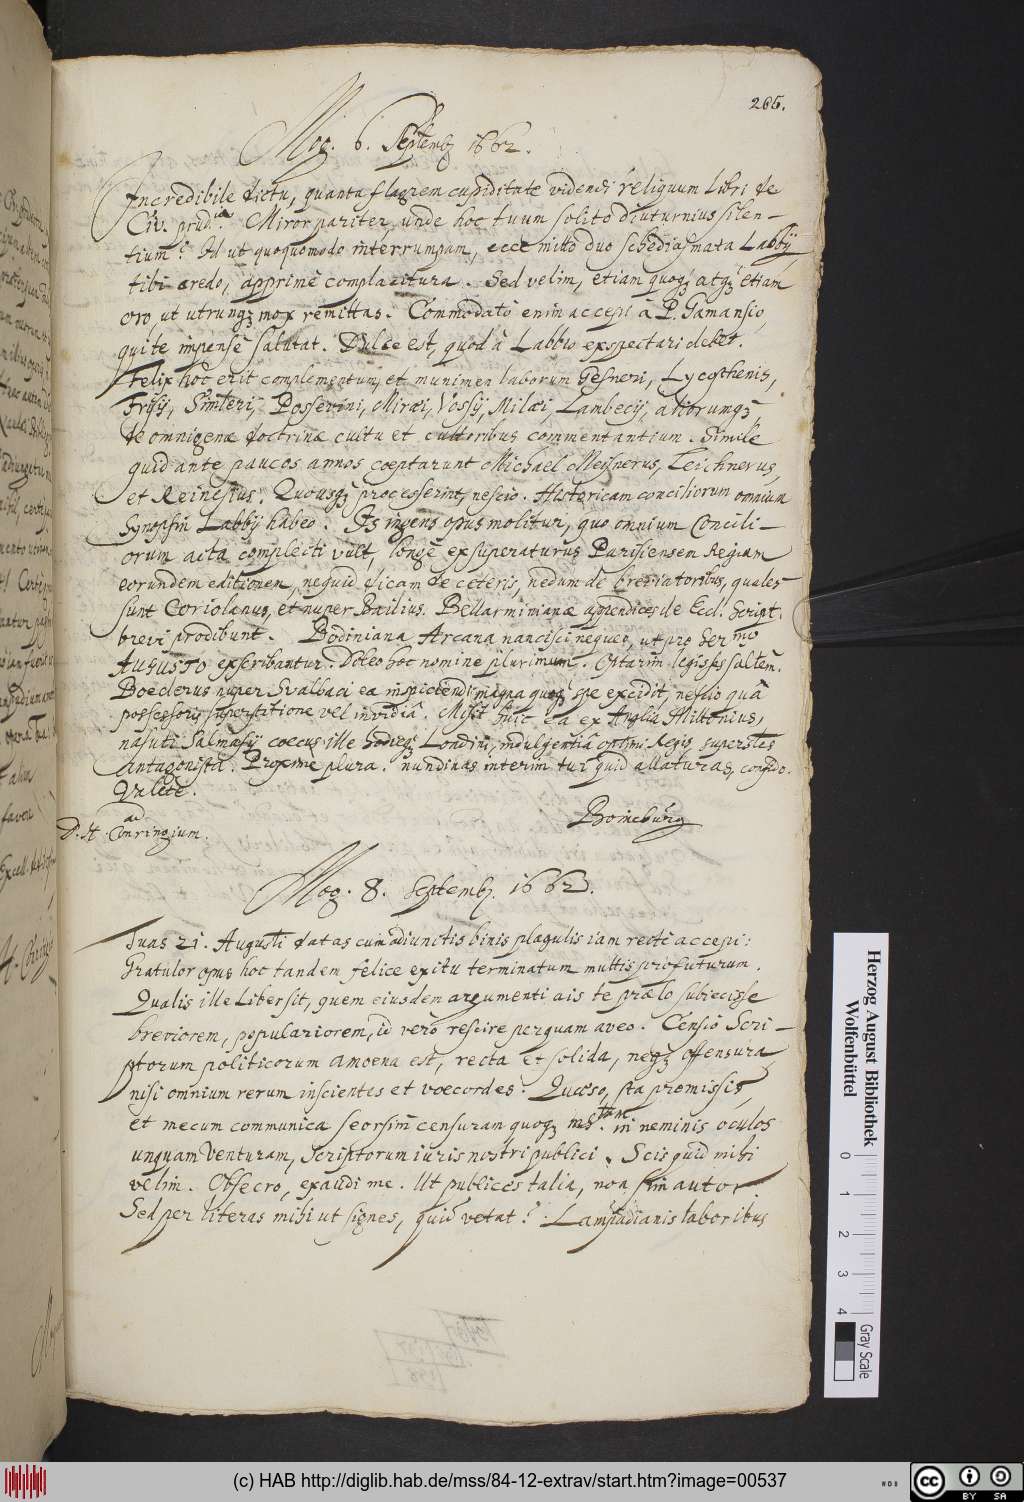 265.
Mog. 6. Septemb. 1662.
Incredibile dictu, quanta flagrem cupiditate videndi reliquum libri de
Civ. prud.ia Miror pariter, unde hoc tuum solito diuturnius silen-
tium? Id ut quoquomodo interrumpam, ecce mitto duo schediasmata Labbij,
tibi credo, apprimè complacitura. Sed velim, etiam quoq; atq; etiam
oro, ut utrunq; mox remittas. Commodatò enim accepi à P. Gamansio,
qui te impensè salutat. Dulce est, quod à Labbeo exspectari debet.
Felix hoc erit complementum, et munimen laborum Gesneri, Lycosthenis,
Frisij, Simleri, Possevini, Miræi, Vossij, Milæi, Lambecij, aliorumq;,
de omnigenæ doctrinæ cultu et cultoribus commentantium. Simile
quid ante paucos annos coeptarunt Michael Meisnerus, Teichnerus,
et Reinesius. Quousq; processerint, nescio. Historicam conciliorum omnium
Synopsin Labbij habeo. Is ingens opus molitur, quo omnium Concili-
orum acta complecti vult, longè exsuperaturus Parisiensem Regiam
eorundem editionem, nequid dicam de ceteris, nedum de breviatoribus, quales
sunt Coriolanus, et nuper Bailius. Bellarminianæ appendices de Eccl. Script.
brevi prodibunt. Bodiniana Arcana nancisci nequeo, ut pro Ser.mo
AUGUSTO exscribantur. Doleo hoc nomine plurimum. Optarim legisses saltem.
Boeclerus nuper Svalbaci ea inspiciendi magna quoq; spe excidit, nescio quâ
possessoris superstitione vel invidiâ. Misit huic ea ex Anglia Miltonius,
nasuti Salmasij coecus ille hodieq; Londini, indulgentiâ optimi Regis superstes
antagonista. Proxime plura. nundinas interim tui quid allaturas, confido.
Valete.
Boineburg
ad
D. H. Conringium.
Mog. 8. Septemb. 1662.
Tuas 21. Augusti datas cum adiunctis binis plagulis iam rectè accepi.
Gratulor opus hoc tandem felice exitu terminatum multis profuturum.
Qualis ille Liber sit, quem eiusdem argumenti ais te prælo subiecisse
breviorem, populariorem, id verò rescire perquam aveo. Censio Scri-
ptorum politicorum amoena est, recta et solida, neq; offensura,
nisi omnium rerum inscientes et voecordes. Quæso, sta promissis,
et mecum communica seorsim censuram quoq; ms.tam in neminis oculos
unquam venturam, Scriptorum iuris nostri publici. Scis quid mihi
velim. Obsecro, exaudi me. Ut publices talia, non sum autor.
Sed per literas mihi ut signes, quid vetat? Lampadianis laboribus
Herzog August Bibliothek
Wolfenbüttel
0 1 2 3 4
Gray Scale
(c) HAB http://diglib.hab.de/mss/84-12-extrav/start.htm?image=00537
cc BY SA